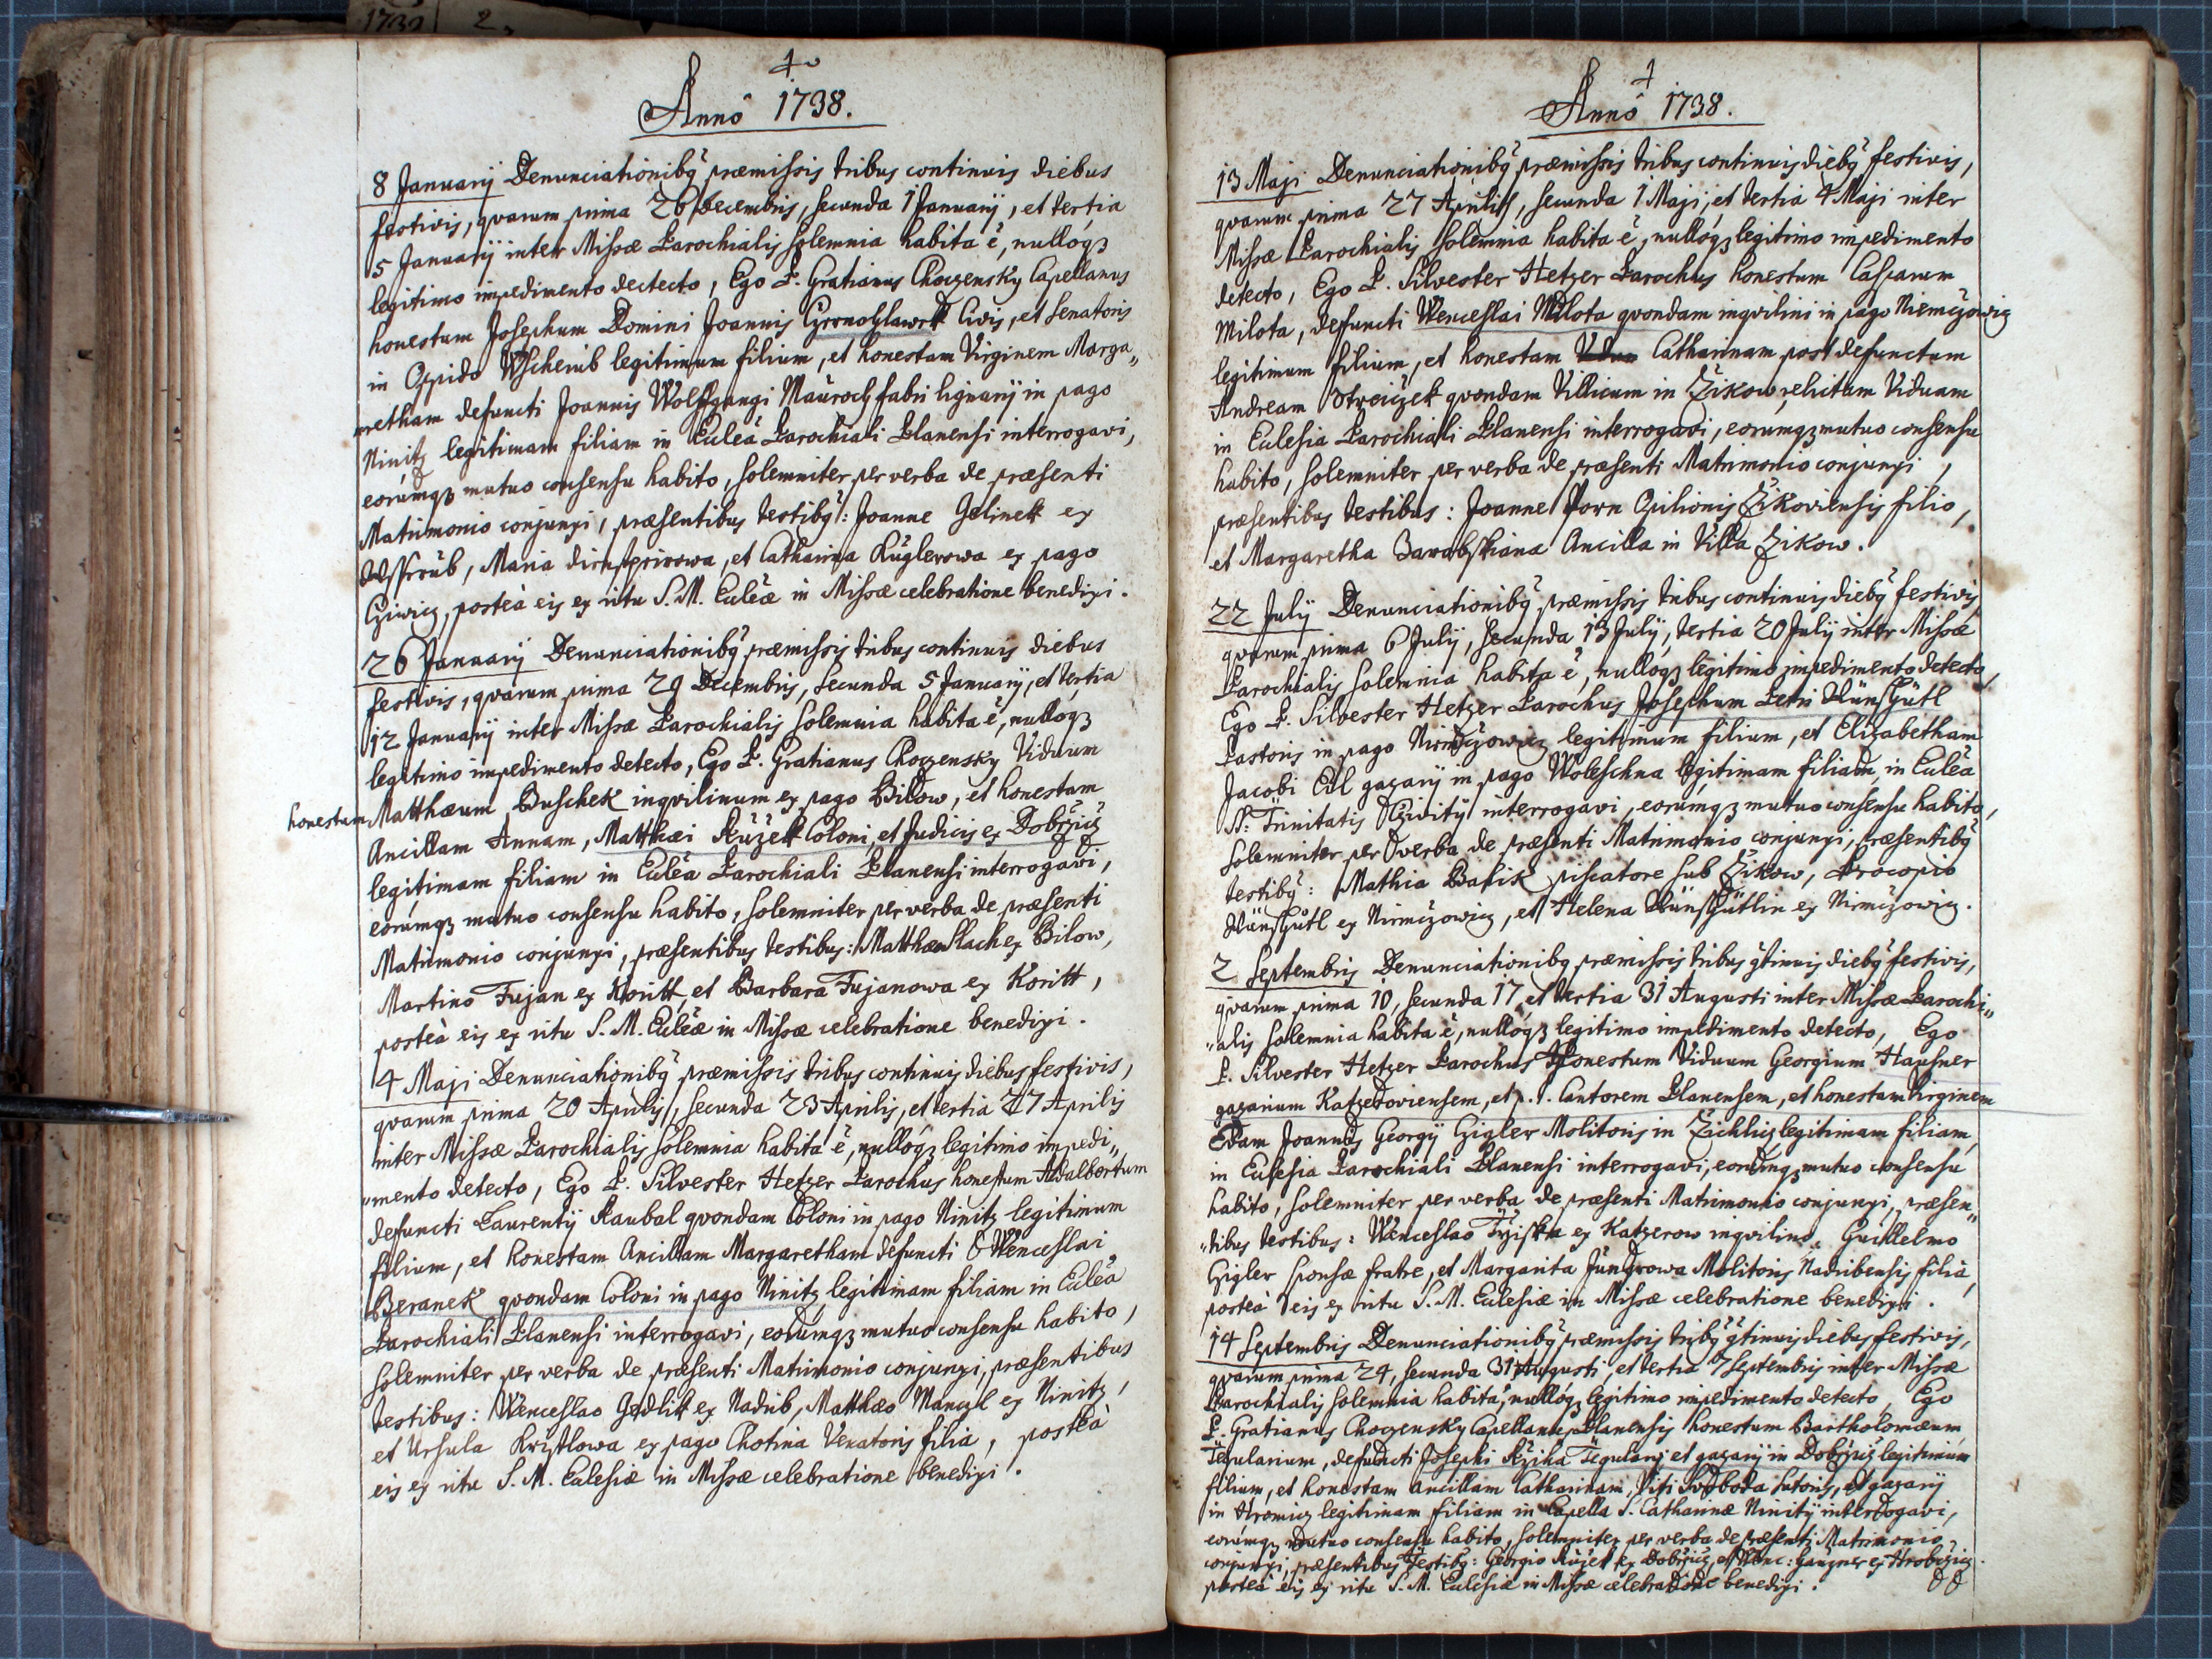 1739 2
Annô 1738.
8 Januarij Denunciationibq præmissis tribus continuis diebus
festivis, qvarum prima 26 Decembris, secunda 1 Januarij, et tertia
5 Januarij inter Missæ Parochialis solemnia habita ē, nullóqz
legitimo impedimento dectecto, Ego P. Gratianus Choczensky Capellanus
honestum Josephum Domini Joannis Civis, et Senatoris
in Oppido Wscherub legitimum filium, et honestam Virginem Marga„
retham defuncti Joannis Wolffgangi fabri lignarij in pago
Ninitz legitimam filiam in Eccleā Parochiali Planensi interrogavi,
eorúmqz mutuo consensu habito, solemniter per verba de præsenti
Matrimonio conjunxi, præsentibus testibq: Joanne Jelinek ex
Wssrub, Maria et Catharina Kuglerowa ex pago
Cziwicz, posteà eis ex ritu S. M. Ecclēæ in Missæ celebratione benedixi.
26 Januarij Denunciationibq præmissis tribus continuis diebus
festivis, qvarum prima 29 Decembris, secunda 5 Januarij, et tertia
12 Januarij inter Missæ Parochialis solemnia habita ē, nulloqz
legitimo impedimento detecto, Ego P. Gratianus Choczensky Viduum
honestum Matthæum Buschek inqvilinum ex pago Bilow, et honestam
Ancillam Annam, Matthæi Ružek Coloni, et Judicis ex Dobržicz
legitimam filiam in Eccleā Parochiali Planensi interrogavi,
eorúmqz mutuo consensu habito, solemniter per verba de præsenti
Matrimonio conjunxi, præsentibus testibus: Matthæo Slach ex Bilow,
Martino Fujan ex Koritt, et Barbara Fujanowa ex Koritt,
posteà eis ex ritu S. M. Ecclēæ in Missæ celebratione benedixi.
4 Maji Denunciationibq præmissis tribus continuis diebus festivis,
qvarum prima 20 Aprilis, secunda 23 Aprilis, et tertia 27 Aprilis
inter Missæ Parochialis solemnia habita ē, nullóqz legitimo impedi„
„mento detecto, Ego P. Silvester Hetzer Parochus honestum Adalbertum
defuncti Laurentij Kaubal qvondam Coloni in pago Ninitz legitimum
filium, et honestam Ancillam Margaretham defuncti Wenceslai
Beranek qvondam Coloni in pago Ninitz legitimam filiam in Eccleā
Parochiali Planensi interrogavi, eorúmqz mutuo consensu habito,
solemniter per verba de præsenti Matrimonio conjunxi, præsentibus
testibus: Wenceslao Jedlik ex Nadrib, Matthæo Manczl ex Ninitz,
et Ursula ex pago Chotina Venatoris filia, posteà
eis ex ritu S. M. Ecclesiæ in Missæ celebratione benedixi.
Annô 1738.
13 Maji Denunciationibq præmissis tribus continuis diebq festivis,
qvarum prima 27 Aprilis, secunda 1 Maji, et tertia 4 Maji inter
Missæ Parochialis solemnia habita ē, nullóqz legitimo impedimento
detecto, Ego P. Silvester Hetzer Parochus honestum Casparum
Milota, defuncti Wenceslai Milota qvondam inqvilini in pago Niemczowicz
legitimum filium, et honestam Catharinam post defunctum
Andream Streiczek qvondam Villicum in Czikow, relictam Viduam
in Ecclesia Parochiali Planensi interrogavi, eorumqz mutuo consensu
habito, solemniter per verba de præsenti Matrimonio conjunxi,
præsentibus testibus: Joanne Porn Opilionis Czikoviensis filio,
et Margaretha Ancilla in Villa Czikow.
22 Julij Denunciationibq præmissis tribus continuis diebq festivis
qvarum prima 6 Julij, secunda 13 Julij, tertia 20 Julij inter Missæ
Parochialis solemnia habita ē, nullóqz legitimo impedimento detecto,
Ego P. Silvester Hetzer Parochus Josephum Petri Wünschgütl
Pastoris in pago Nirmczowicz legitimum filium, et Elisabetham
Jacobi Cil gazarij in pago Woleschna legitimam filiam, in Eccleā
SS: Trinitatis interrogavi, eorúmqz mutuo consensu habito,
solemniter per verba de præsenti Matrimonio conjunxi, præsentibq
testibq: Mathia Basik piscatore sub Czikow, Procopio
Wünschgütl ex Nirmczowicz, et Helena Wünschgütlin ex Nirmczowicz.
2 Septembris Denunciationibq præmissis tribus qtinuis diebq festivis,
qvarum prima 10, secunda 17, et tertia 31 Augusti inter Missæ Parochi„
„alis solemnia habita ē, nullóqz legitimo impedimento detecto, Ego
P. Silvester Hetzer Parochus Honestum Viduum Georgium Hausner
gazarium Katzeroviensem, et p. t. Cantorem Planensem, et honestam Virginem
Evam Joannis Georgij Gigler Molitoris in Zichlitz legitimam filiam,
in Ecclesia Parochiali Planensi interrogavi, eorúmqz mutuo consensu
habito, solemniter per verba de præsenti Matrimonio conjunxi, præsen„
„tibus testibus: Wenceslao ex Katzerow inqvilino, Guillelmo
Gigler sponsæ fratre, et Margarita Jungrowa Molitoris Nadribensis filia,
posteà eis ex ritu S. M. Ecclesiæ in Missæ celebratione benedixi.
14 Septembris Denunciationibq præmissis tribq qtinuis diebus festivis,
qvarum prima 24, secunda 31 Augusti, et tertia 7 Septembris inter Missæ
Parochialis solemnia habita, nullóqz legitimo impedimento detecto, Ego
P. Gratianus Choczensky Capellanus Planensis honestum Bartholomæum
Tegularium, defuncti Josephi Ržiha Tegularij et gazarij in Dobržicz legitimum
filium, et honestam Ancillam Catharinam, Viti Swoboda Sutoris, et gazarij
in Hromicz legitimam filiam in Capella S. Catharinæ Ninitij interrogavi,
eorúmqz mutuo consensu habito, solemniter per verba de præsenti Matrimonio
conjunxi, præsentibus testibq: Georgio Ružek ex Dobržicz, et Wenc: Gangner ex Hrobczicz
posteà eis ex ritu S. M. Ecclesiæ in Missæ celebratione benedixi.